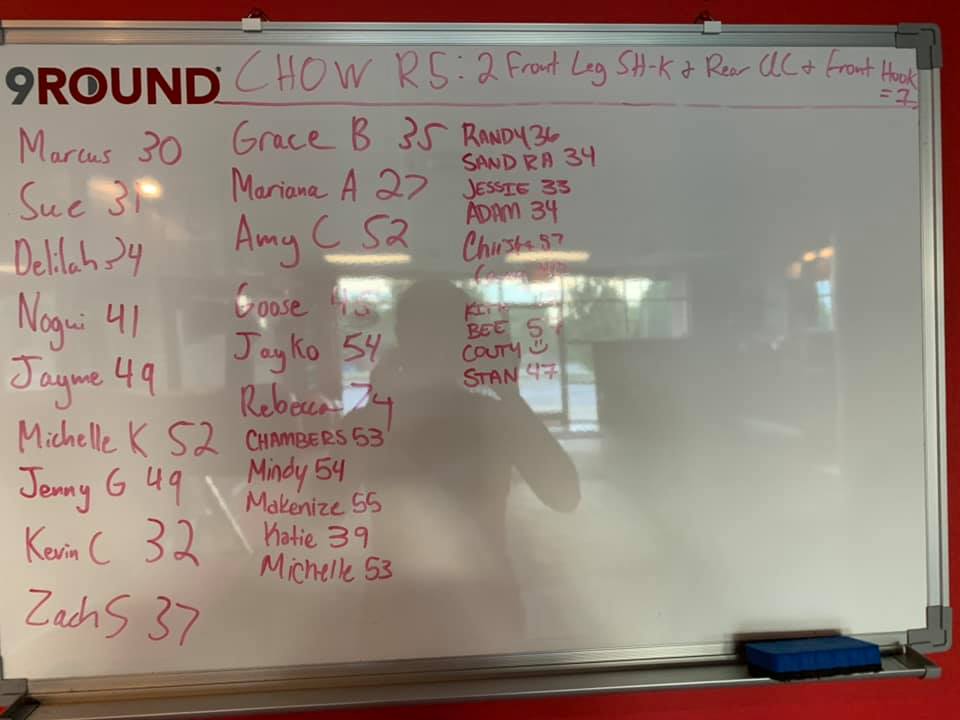 9ROUND
CHOW R5: 2 Front Leg SH-K + Rear UC + Front Hook
= 7
Marcus 30
Sue 31
Delilah 34
Nogui 41
Jayme 49
Michelle K 52
Jenny G 49
Kevin C 32
Zach S 37
Grace B 35
Mariana A 27
Amy C 52
Goose 45
Jayko 54
Rebecca 74
CHAMBERS 53
Mindy 54
Makenize 55
Katie 39
Michelle 53
RANDY 36
SANDRA 34
JESSIE 33
ADAM 34
57
BEE
COUTY
STAN 47